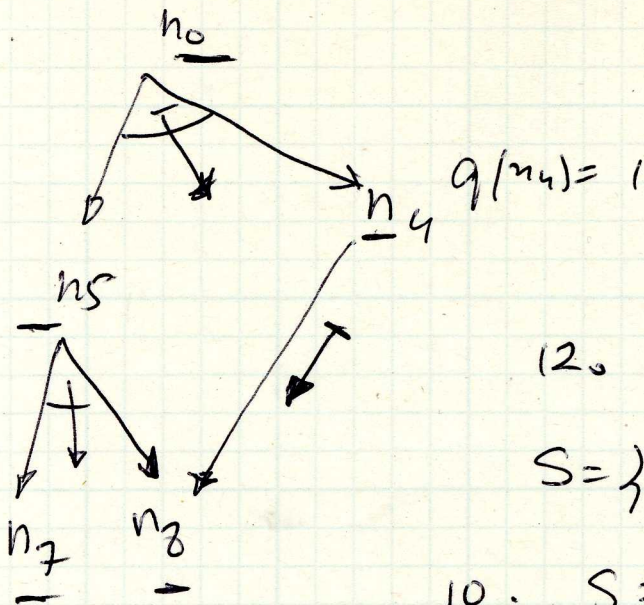 n0
q(n4) = 1
n4
n5
12.
S = {
n7 n8
10. S =